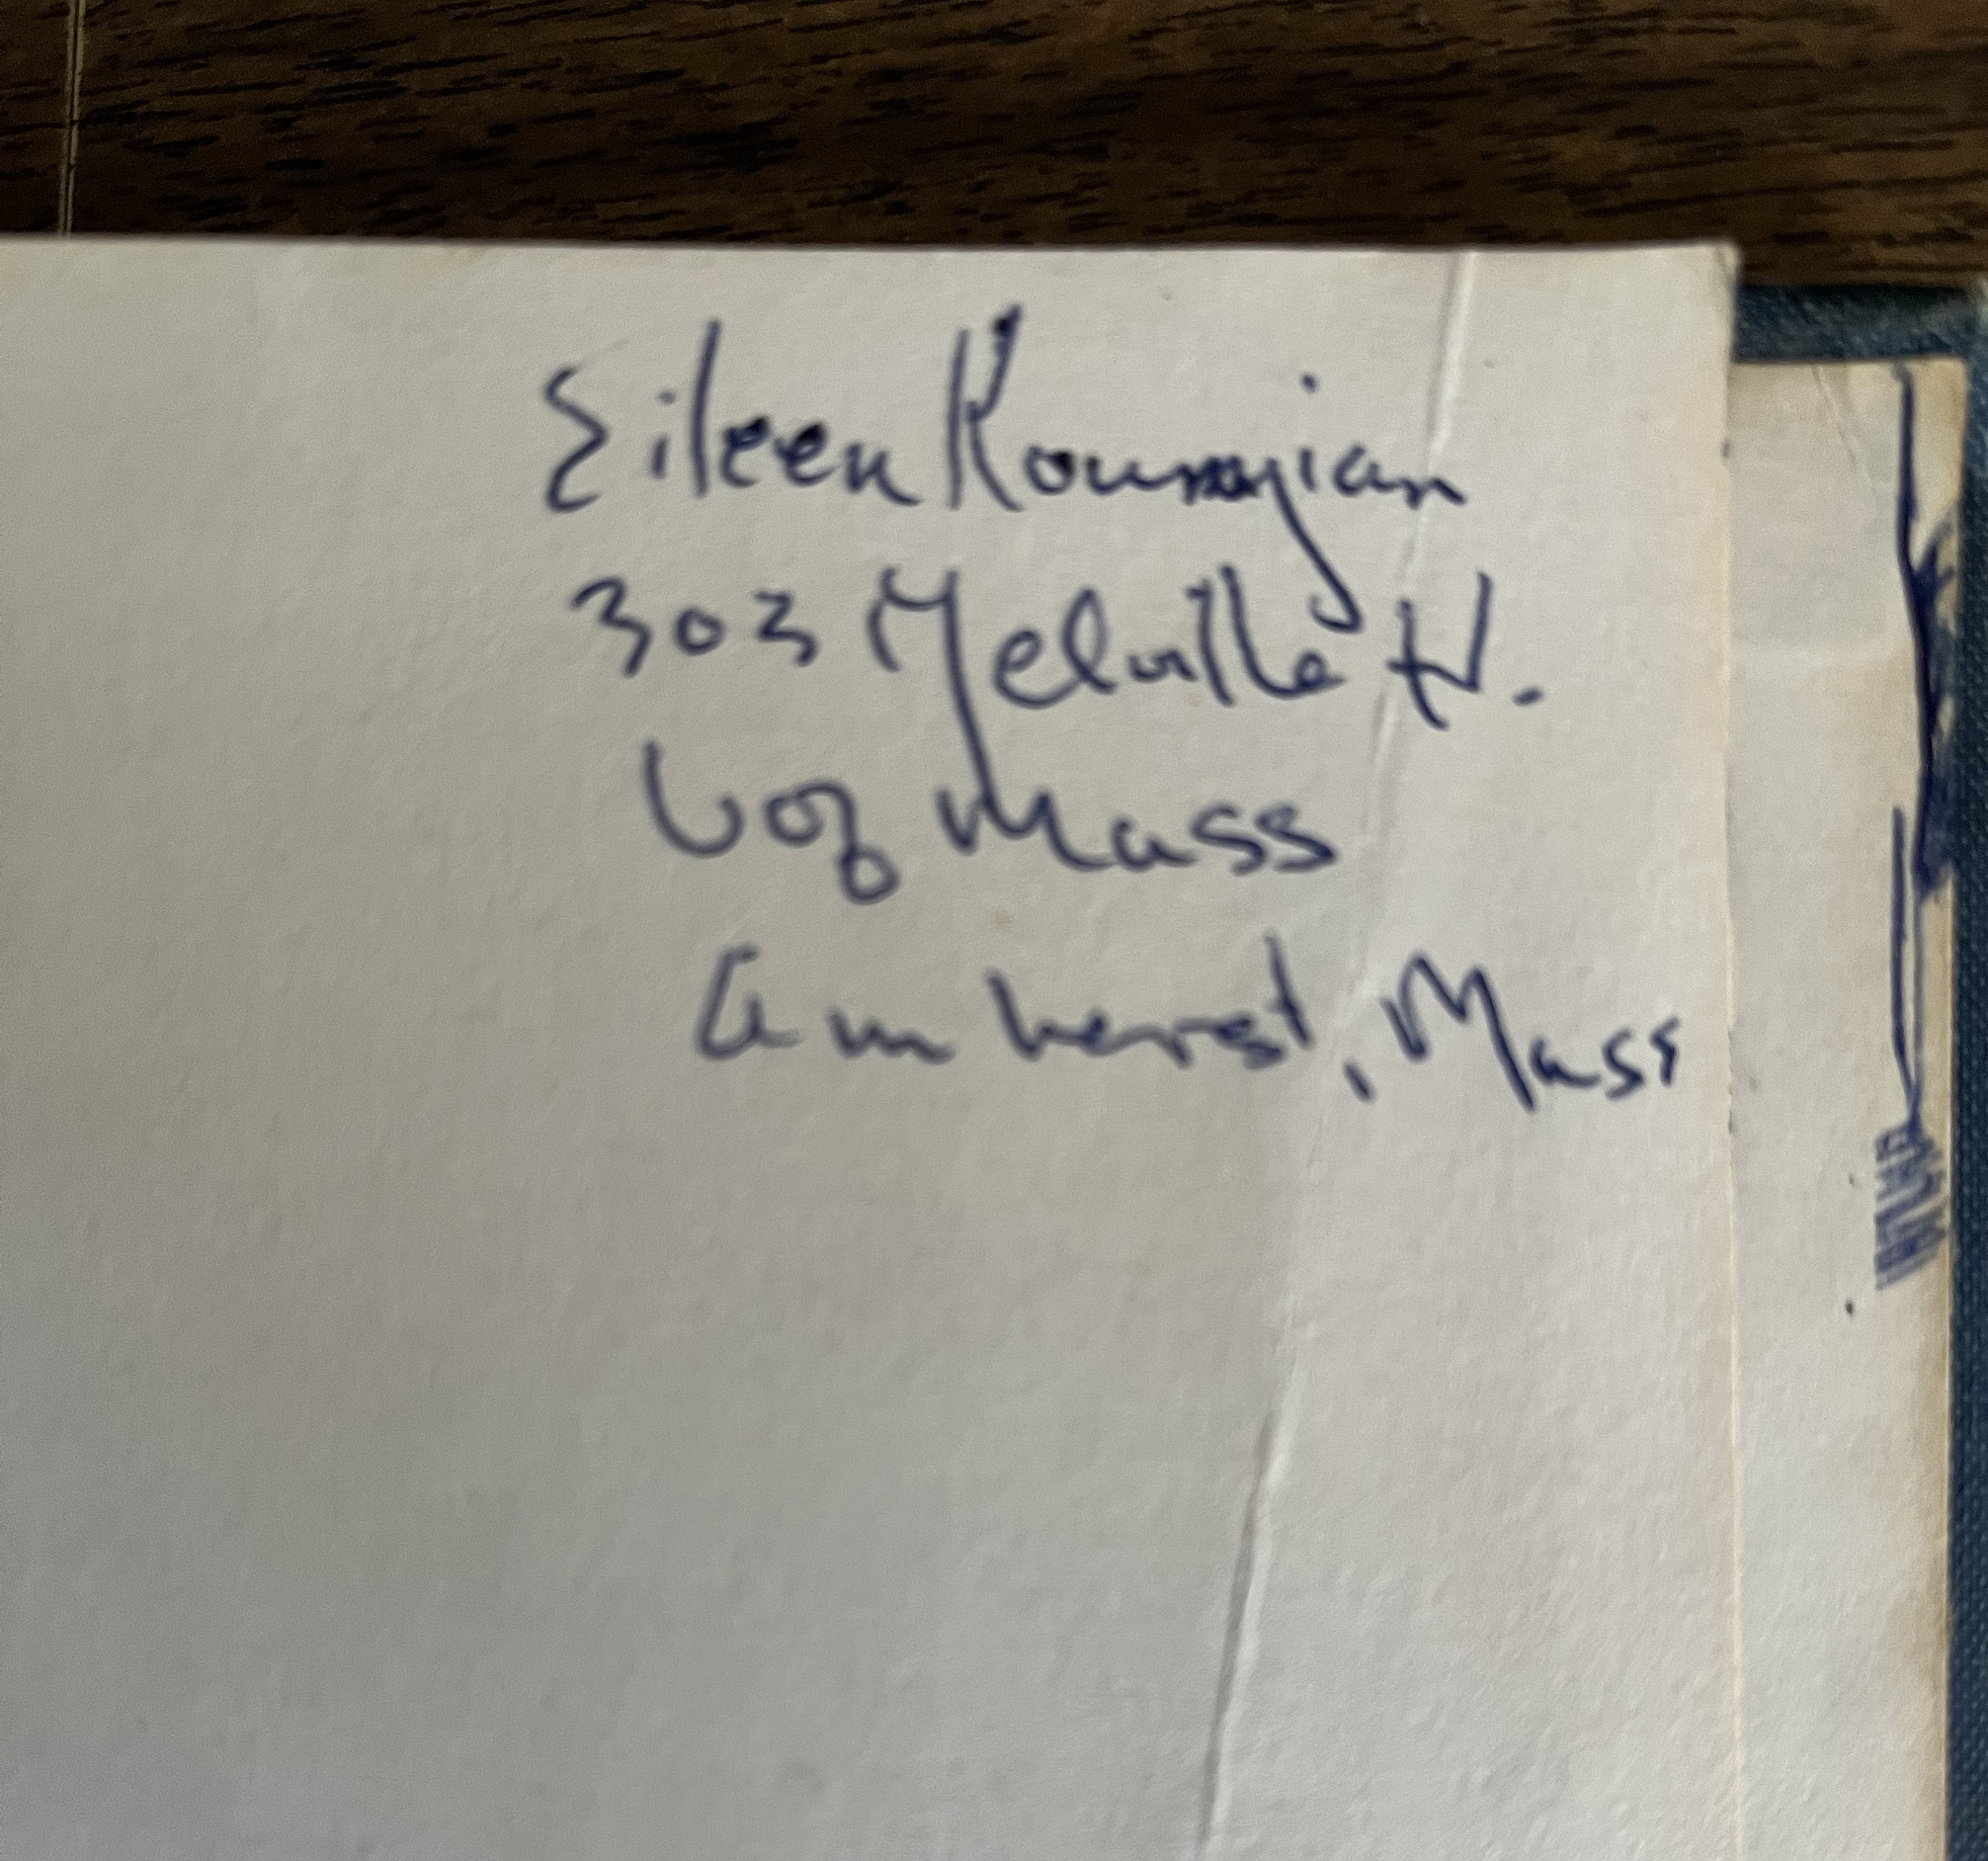 Eileen Koumjian
303 Melville H.
U of Mass
Amherst, Mass